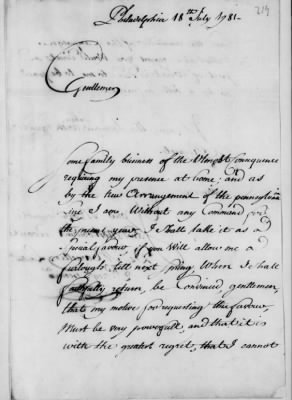 219
Philadelphia 18th July 1781-
Gentlemen
Some family business of the Utmost Consequence
requiring my presence at home; and as
by the new Arrangement of the pensylvania
Line I am Without any Command for
the present year, I Shall take it as a
Special favour if you Will allow me a
furlough till next Spring, When I shall
faithfully return, be Convinced, gentlemen,
that my motive for requesting this favour,
Must be very powerfull, and that it is
with the greatest regret, that I cannot